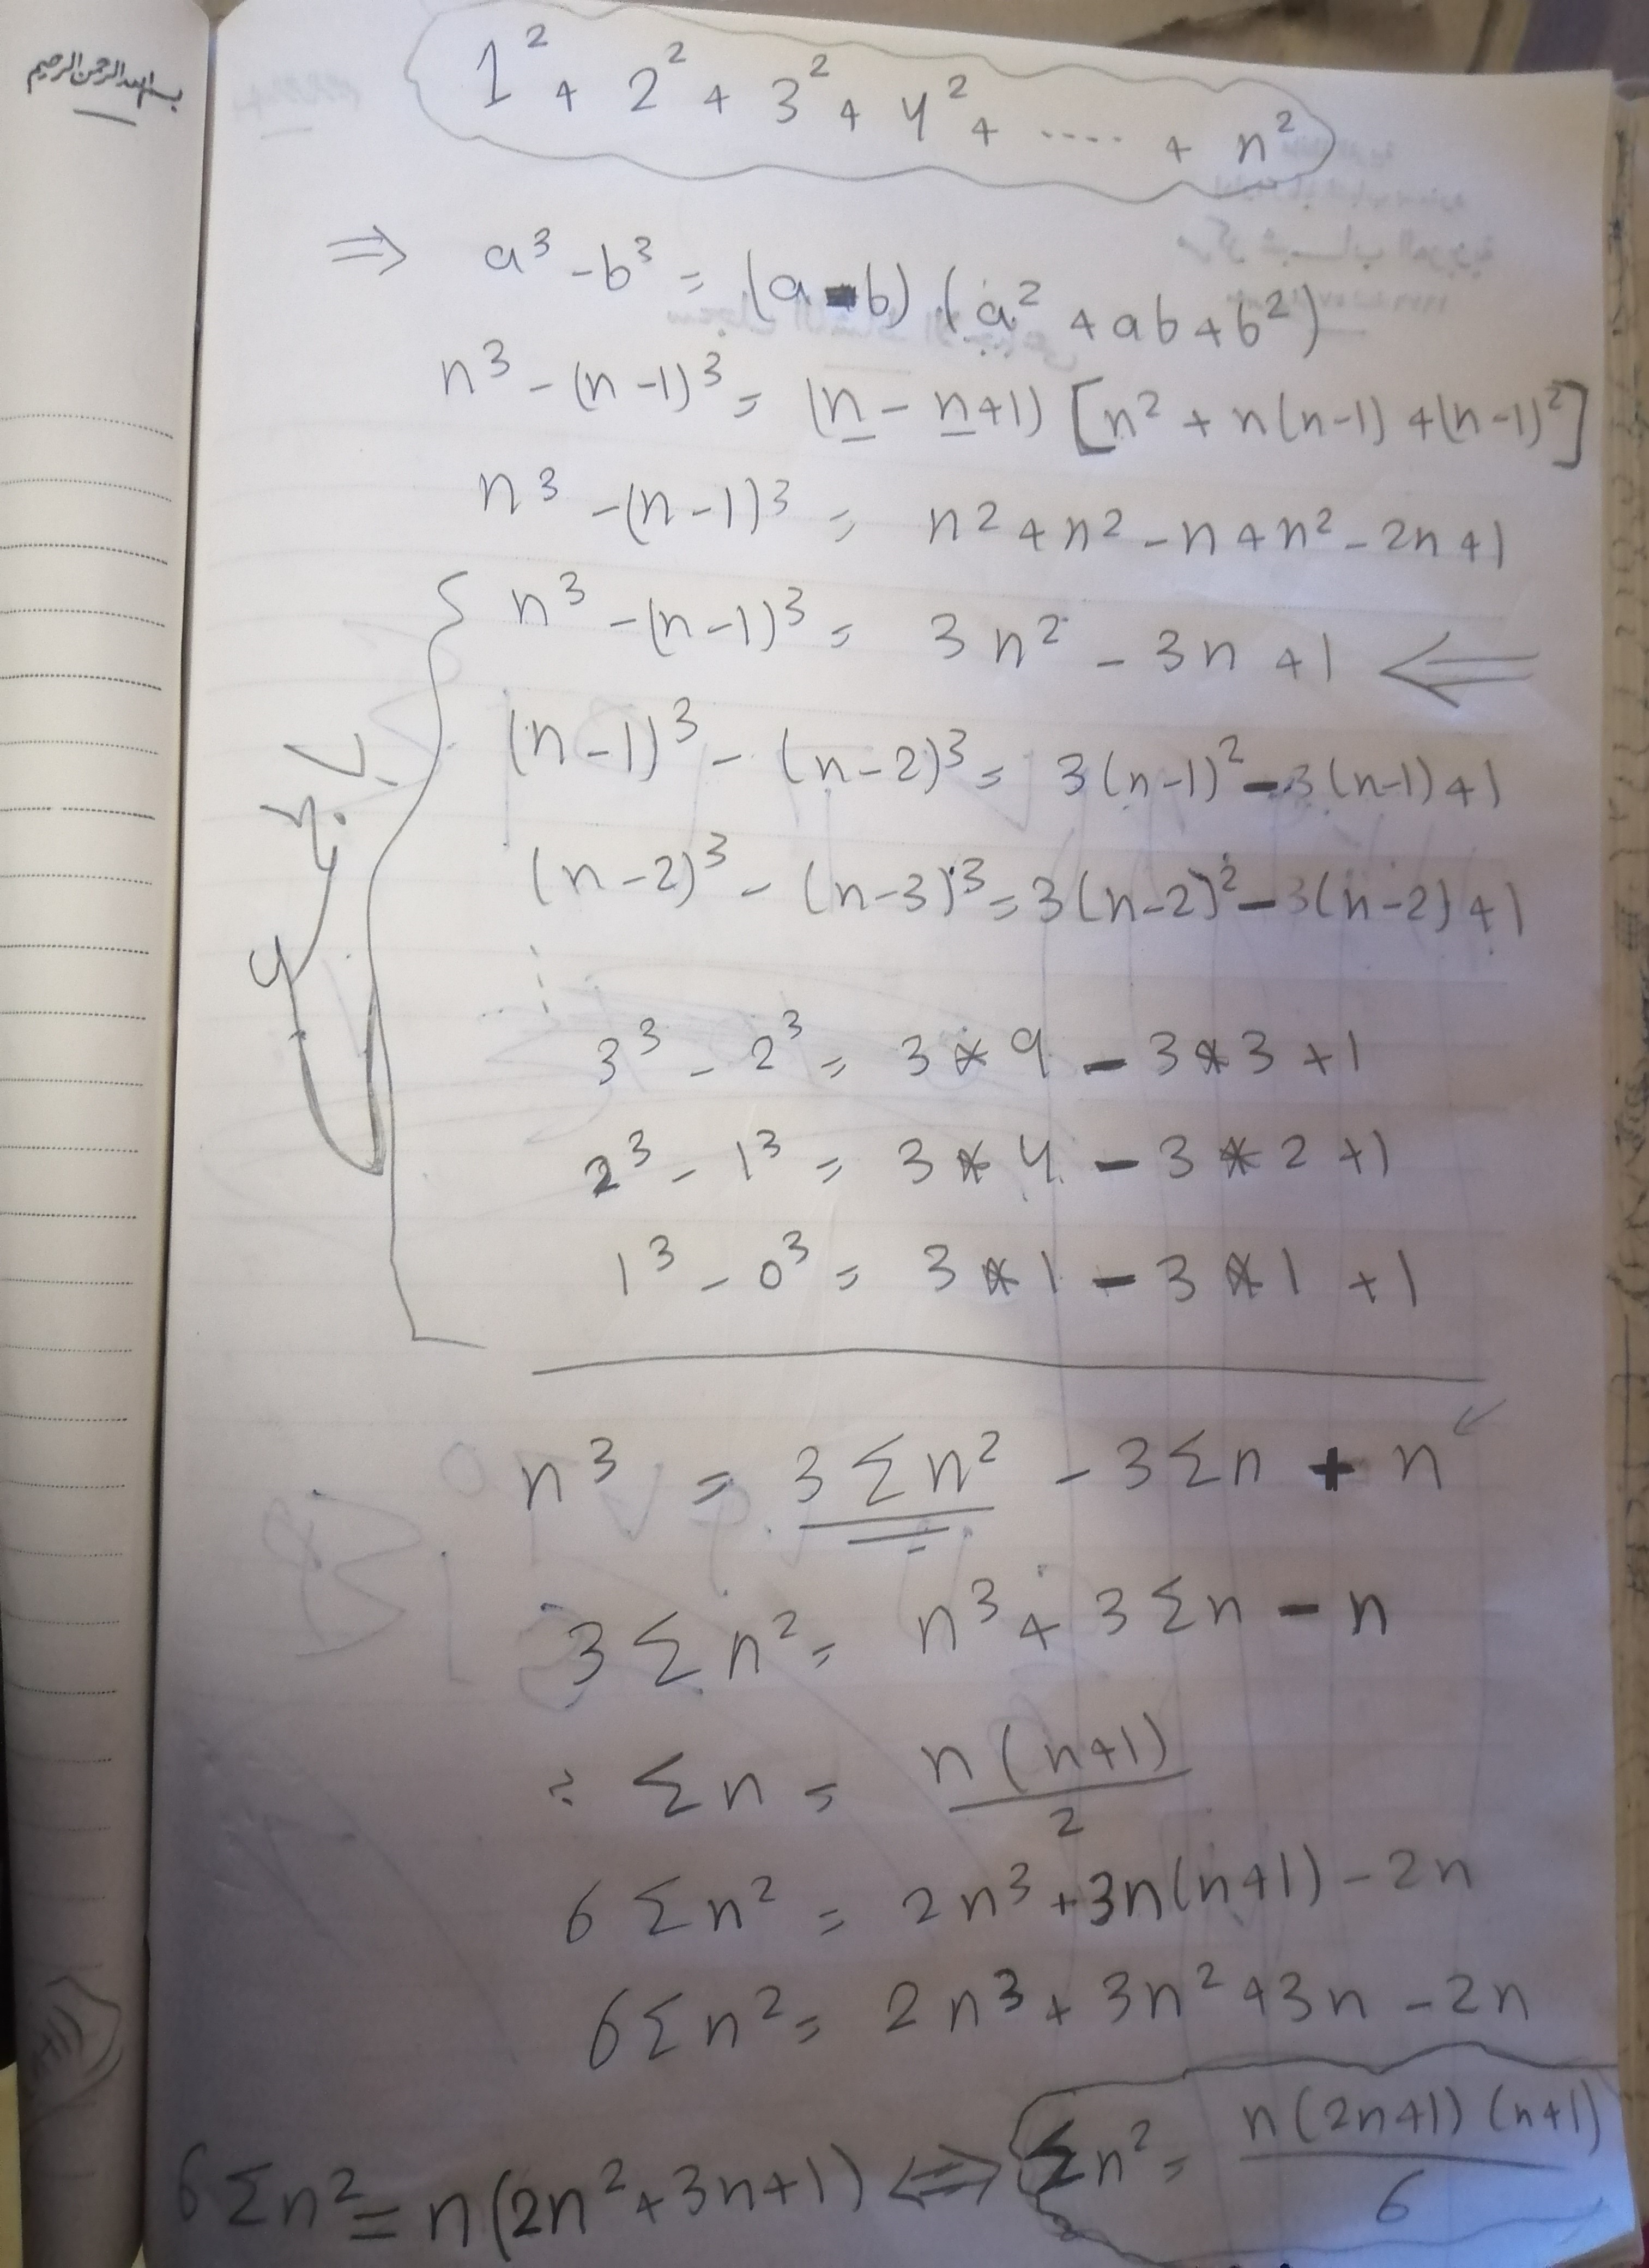 بسم الله الرحمن الرحيم
1² + 2² + 3² + 4² + ..... + n²
⇒ a³ - b³ = (a - b) (a² + ab + b²)
n³ - (n - 1)³ = (n - n + 1) [n² + n(n-1) + (n-1)²]
n³ - (n - 1)³ = n² + n² - n + n² - 2n + 1
n³ - (n - 1)³ = 3n² - 3n + 1 ⇐
(n - 1)³ - (n - 2)³ = 3(n-1)² - 3(n-1) + 1
(n - 2)³ - (n - 3)³ = 3(n-2)² - 3(n-2) + 1
3³ - 2³ = 3 * 9 - 3 * 3 + 1
2³ - 1³ = 3 * 4 - 3 * 2 + 1
1³ - 0³ = 3 * 1 - 3 * 1 + 1
n³ = 3 Σ n² - 3 Σ n + n
3 Σ n² = n³ + 3 Σ n - n
Σ n = n(n+1) / 2
6 Σ n² = 2n³ + 3n(n+1) - 2n
6 Σ n² = 2n³ + 3n² + 3n - 2n
6 Σ n² = n(2n² + 3n + 1) ⇔ Σ n² = n(2n+1)(n+1) / 6